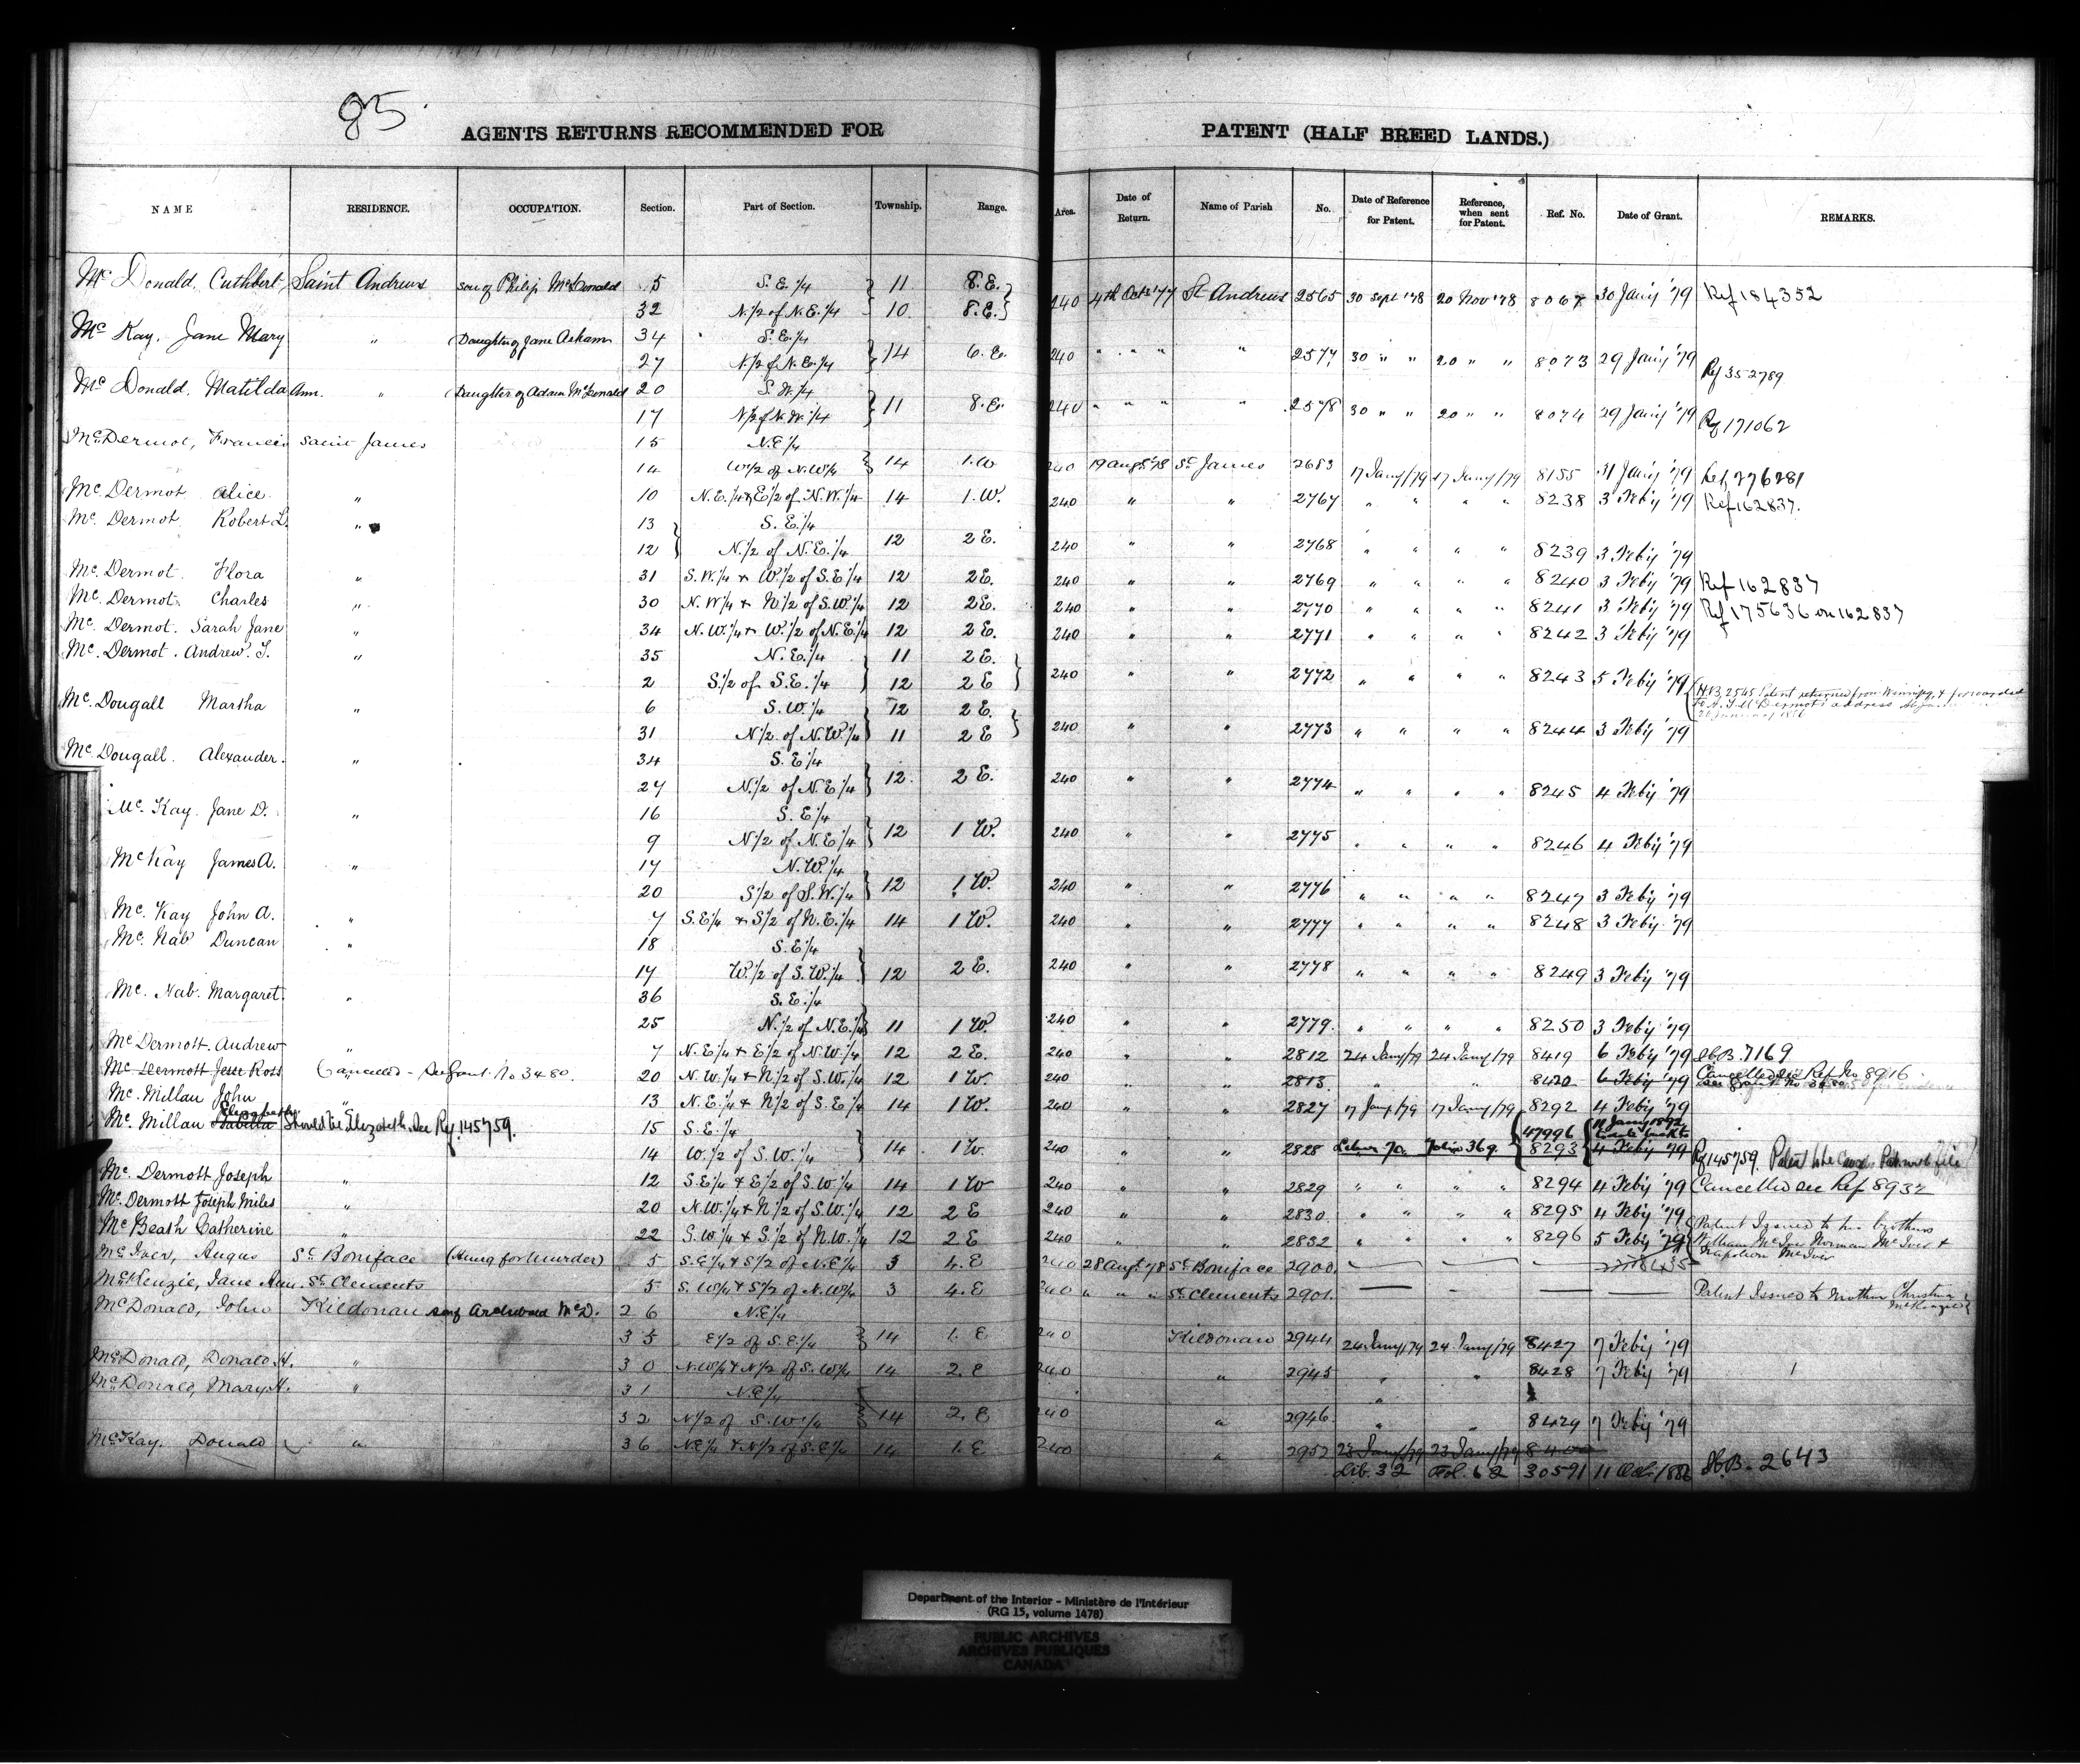 85
AGENTS RETURNS RECOMMENDED FOR PATENT (HALF BREED LANDS.)
NAME RESIDENCE. OCCUPATION. Section. Part of Section. Township. Range. Area. Date of Return. Name of Parish No. Date of Reference for Patent. Reference, when sent for Patent. Ref. No. Date of Grant. REMARKS.
Mc Donald, Cuthbert Saint Andrews son of Philip McDonald 5 S.E.1/4 } 11 8.E. }
32 N.1/2 of N.E.1/4 } 10 8.E. } 240 4th Octr '77 St Andrews 2565 30 Sept '78 20 Nov '78 8067 30 Jany '79 Ref 184352
Mc Kay, Jane Mary " (Daughter of Jane Askam 34 S.E.1/4
27 N.1/2 of N.E.1/4 } 14 6.E. 240 " " " " 2577 30 " " 20 " " 8073 29 Jany '79 Ref 352789
Mc Donald, Matilda Ann. " (Daughter of Adam McDonald 20 S.W.1/4
17 N.1/2 of N.W.1/4 } 11 8.E. 240 " " " " 2578 30 " " 20 " " 8074 29 Jany '79 Ref 171062
McDermot, Francis Saint James 15 N.E1/4
14 W1/2 of N.W1/4 } 14 1.W 240 19 Augt '78 St James 2683 17 Jany/79 17 Jany/79 8155 31 Jany '79 Ref 276281
Mc Dermot Alice " 10 N.E.1/4 & E1/2 of N.W.1/4 14 1.W. 240 " " 2767 " " " " 8238 3 Feby '79 Ref 162837.
Mc. Dermot Robert L. " 13 } S.E.1/4
12 } N.1/2 of N.E.1/4 12 2 E. 240 " " 2768 " " " " 8239 3 Feby '79
Mc. Dermot. Flora " 31 S.W.1/4 & W.1/2 of S.E1/4 12 2 E. 240 " " 2769 " " " " 8240 3 Feby '79 Ref 162837
Mc. Dermot. Charles " 30 N.W1/4 & N1/2 of S.W1/4 12 2 E. 240 " " 2770 " " " " 8241 3 Feby '79 Ref 175636 on 162837
Mc. Dermot. Sarah Jane " 34 N.W.1/4 & W.1/2 of N.E.1/4 12 2 E. 240 " " 2771 " " " " 8242 3 Feby '79
Mc. Dermot. Andrew. T. " 35 N.E.1/4 11 2 E.
2 S.1/2 of S.E.1/4 } 12 2 E } 240 " " 2772 " " " " 8243 5 Feby '79 (H.B. 2545 Patent returned from Winnipeg & forwarded
Mc. Dougall Martha " 6 S.W.1/4 12 2 E.
31 N1/2 of N.W.1/4 } 11 2 E } 240 " " 2773 " " " " 8244 3 Feby '79
Mc Dougall. Alexander. " 34 S.E1/4
27 N.1/2 of N.E1/4 } 12. 2 E. 240 " " 2774 " " " " 8245 4 Feby '79
Mc. Kay. Jane D. " 16 S.E1/4
9 N1/2 of N.E1/4 } 12 1 W. 240 " " 2775 " " " " 8246 4 Feby '79
Mc Kay James A. " 17 N.W.1/4
20 S1/2 of S.W.1/4 } 12 1 W. 240 " " 2776 " " " " 8247 3 Feby '79
Mc. Kay John A. " 7 S.E1/4 & S1/2 of N.E.1/4 14 1 W. 240 " " 2777 " " " " 8248 3 Feby '79
Mc. Nab Duncan " 18 S.E1/4
17 W.1/2 of S.W.1/4 } 12 2 E. 240 " " 2778 " " " " 8249 3 Feby '79
Mc. Nab. Margaret. " 36 S.E.1/4
25 N.1/2 of N.E.1/4 } 11 1 W. 240 " " 2779. " " " " 8250 3 Feby '79
Mc Dermott. Andrew " 7 N.E1/4 & E1/2 of N.W.1/4 12 2 E. 240 " " 2812 24 Jany/79 24 Jany/79 8419 6 Feby '79 H.B. 7169
Mc Dermott Jesse Ross Cancelled - See Grant No 3480. 20 N.W.1/4 & N1/2 of S.W.1/4 12 1 W. 240 " " 2813. " " 8420 6 Feby '79 Cancelled see Ref No 8916
Mc. Millan John " 13 N.E1/4 & N1/2 of S.E1/4 14 1 W. 240 " " 2827 17 Jany/79 17 Jany/79 8292 4 Feby '79
Mc. Millan Isabella Elizabeth Should be Elizabeth. See Ref. 145759. 15 S.E.1/4 47996 11 Jany 1892
14 W.1/2 of S.W.1/4 } 14. 1 W. 240 " " 2828 Liber 70. Folio 369. 8293 4 Feby '79 Ref 145759.
Mc. Dermott Joseph " 12 S.E1/4 & E1/2 of S.W1/4 14 1 W 240 " " 2829 " " " " 8294 4 Feby '79 Cancelled see Ref 8932
Mc. Dermott Joseph Miles " 20 N.W.1/4 & N.1/2 of S.W.1/4 12 2 E 240 " " 2830. " " " " 8295 4 Feby '79
Mc Beath Catherine " 22 S.W1/4 & S.1/2 of N.W.1/4 12 2 E 240 " " 2832 " " " " 8296 5 Feby '79
Mc Iver, Angus St Boniface (Hung for Murder) 5 S.E1/4 & S1/2 of N.E1/4 3 4.E 240 28 Augt '78 St Boniface 2900. Patent Issued to his brothers William McIver Norman McIver & Napoleon McIver
McKenzie, Jane Ann. St Clements 5 S.W1/4 & S1/2 of N.W1/4 3 4.E 240 " " " St Clements 2901. Patent Issued to Mother Christina McKenzie
McDonald, John Kildonan son of Archibald McD. 26 N.E1/4
35 E1/2 of S.E1/4 } 14 1. E 240 Kildonan 2944 24 Jany/79 24 Jany/79 8427 7 Feby '79
McDonald, Donald H. " 30 N.W1/4 & N1/2 of S.W1/4 14 2. E 240 " 2945 " " 8428 7 Feby '79
McDonald, Mary H. " 31 N.E1/4
32 N1/2 of S.W1/4 } 14 2. E 240 " 2946. " " 8429 7 Feby '79
McKay. Donald " 36 N.E1/4 & N1/2 of S.E1/4 14 1. E 240 " 2952 23 Jany/79 23 Jany/79
Lib. 32 Fol. 62 30591 11 Oct. 1886 H.B. 2643
Department of the Interior - Ministère de l'Intérieur
(RG 15, volume 1478)
PUBLIC ARCHIVES
ARCHIVES PUBLIQUES
CANADA